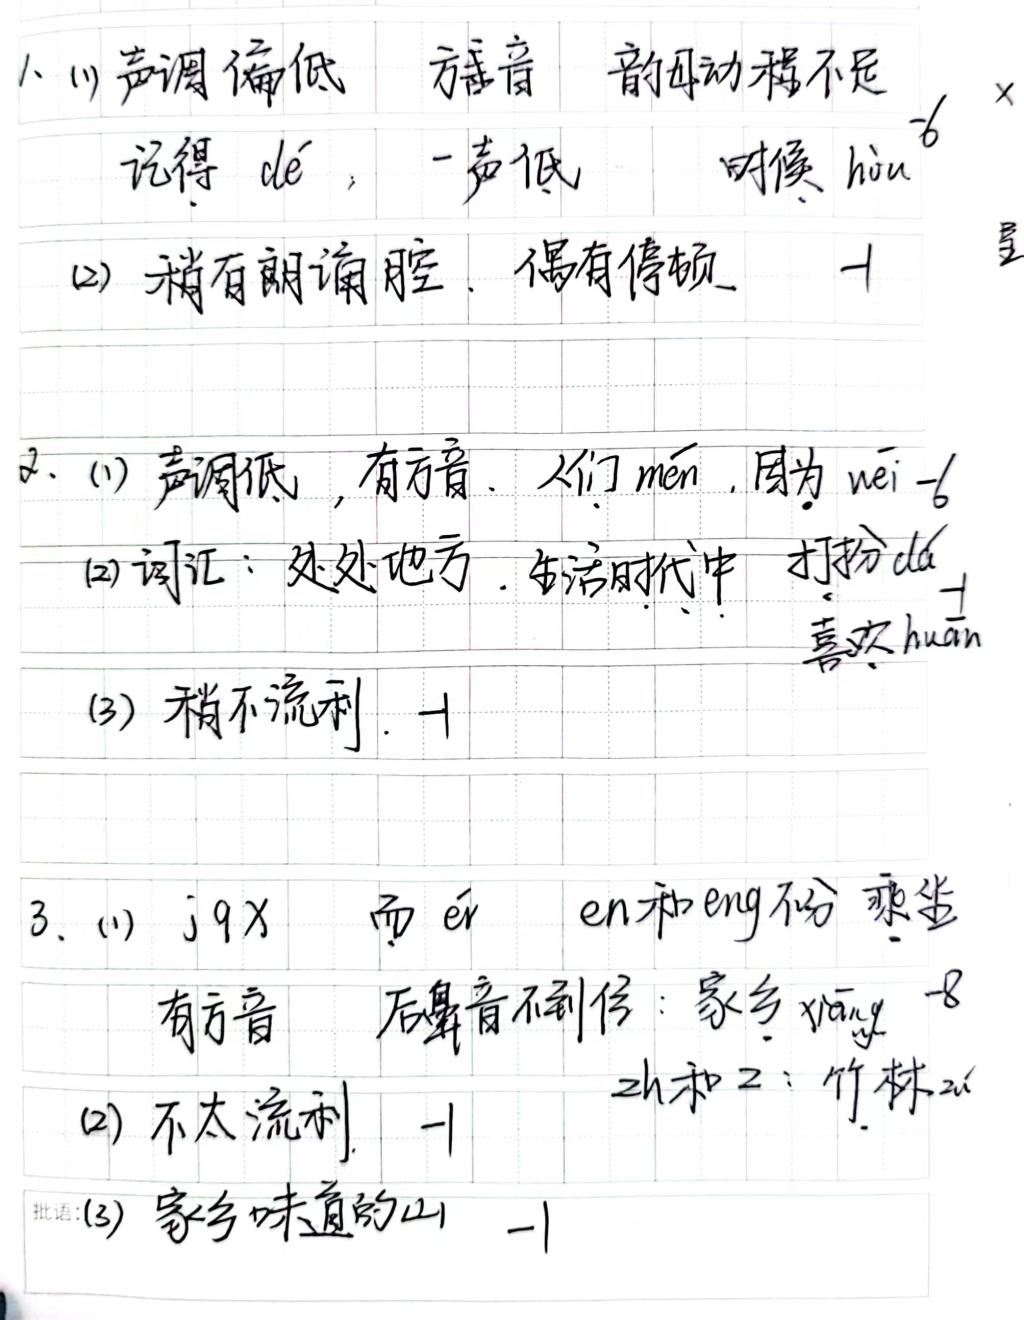 1、(1) 声调偏低 方言音 韵母动程不足
记得 dé, 一声低 时候 hòu -6
(2) 稍有朗诵腔. 偶有停顿 -1
2. (1) 声调低, 有方音. 人们 mén, 因为 wēi -6
(2) 词汇: 处处地方. 生活时代中 打扮 dá -1
喜欢 huān
(3) 稍不流利. -1
3. (1) j q x 而 ér en和eng不分 乘坐
有方音 后鼻音不到位: 家乡 xiāng -8
zh和z: 竹林 zú
(2) 不太流利. -1
批语: (3) 家乡味道的山 -1